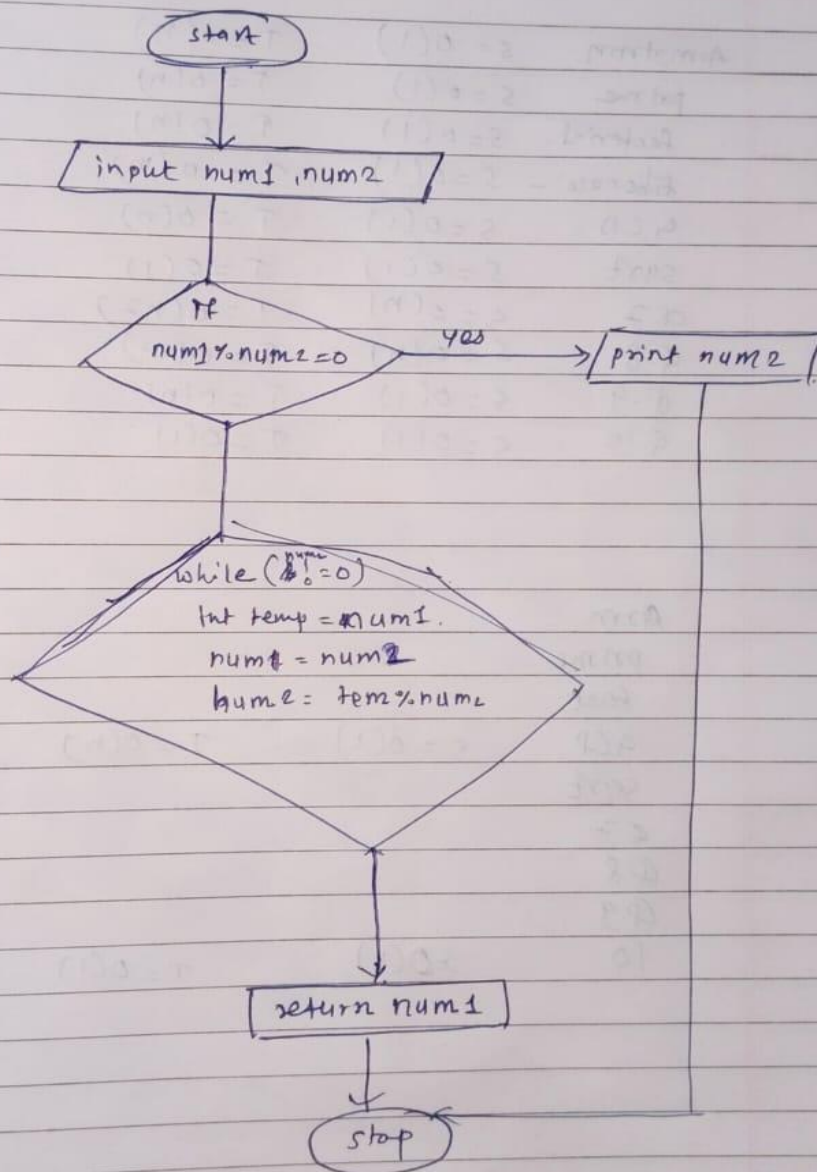 start
input num1, num2
If
num1 % num2 = 0
yes
print num2
while (num2 != 0)
Int temp = num1.
num1 = num2
num2 = tem % num2
return num1
stop